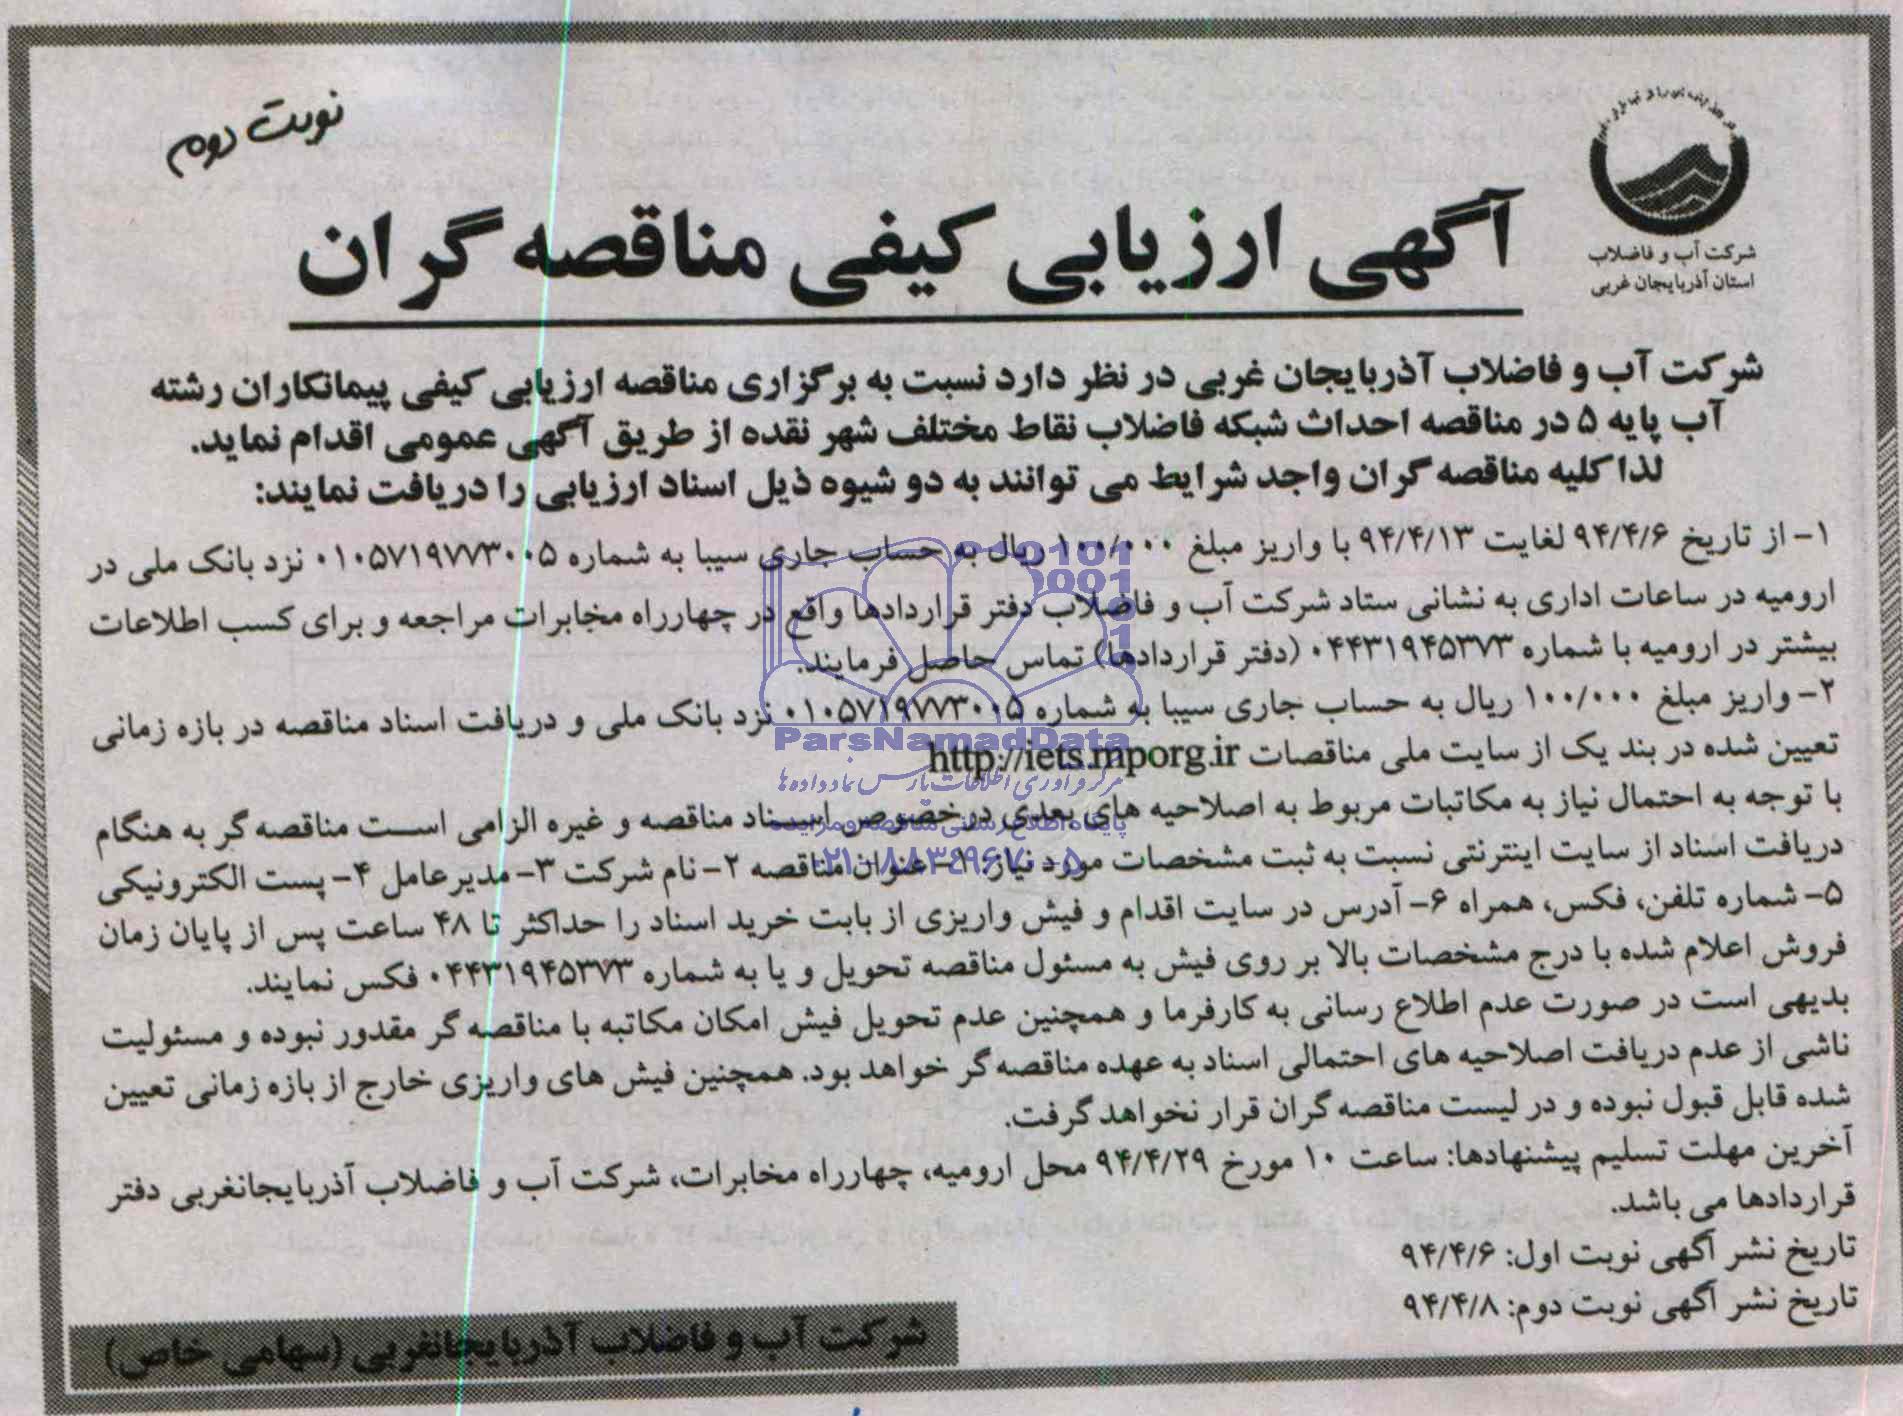 نوبت دوم
شرکت آب و فاضلاب
استان آذربایجان غربی
آگهی ارزیابی کیفی مناقصه گران
شرکت آب و فاضلاب آذربایجان غربی در نظر دارد نسبت به برگزاری مناقصه ارزیابی کیفی پیمانکاران رشته
آب پایه ۵ در مناقصه احداث شبکه فاضلاب نقاط مختلف شهر نقده از طریق آگهی عمومی اقدام نماید.
لذا کلیه مناقصه گران واجد شرایط می توانند به دو شیوه ذیل اسناد ارزیابی را دریافت نمایند:
۱- از تاریخ ۹۴/۴/۶ لغایت ۹۴/۴/۱۳ با واریز مبلغ ۱۰۰/۰۰۰ ریال به حساب جاری سیبا به شماره ۰۱۰۵۷۱۹۷۷۳۰۰۵ نزد بانک ملی در
ارومیه در ساعات اداری به نشانی ستاد شرکت آب و فاضلاب دفتر قراردادها واقع در چهارراه مخابرات مراجعه و برای کسب اطلاعات
بیشتر در ارومیه با شماره ۰۴۴۳۱۹۴۵۳۷۳ (دفتر قراردادها) تماس حاصل فرمایند.
۲- واریز مبلغ ۱۰۰/۰۰۰ ریال به حساب جاری سیبا به شماره ۰۱۰۵۷۱۹۷۷۳۰۰۵ نزد بانک ملی و دریافت اسناد مناقصه در بازه زمانی
تعیین شده در بند یک از سایت ملی مناقصات http://iets.mporg.ir
با توجه به احتمال نیاز به مکاتبات مربوط به اصلاحیه های بعدی درخصوص اسناد مناقصه و غیره الزامی است مناقصه گر به هنگام
دریافت اسناد از سایت اینترنتی نسبت به ثبت مشخصات مورد نیاز: ۱- عنوان مناقصه ۲- نام شرکت ۳- مدیرعامل ۴- پست الکترونیکی
۵- شماره تلفن، فکس، همراه ۶- آدرس در سایت اقدام و فیش واریزی از بابت خرید اسناد را حداکثر تا ۴۸ ساعت پس از پایان زمان
فروش اعلام شده با درج مشخصات بالا بر روی فیش به مسئول مناقصه تحویل و یا به شماره ۰۴۴۳۱۹۴۵۳۷۳ فکس نمایند.
بدیهی است در صورت عدم اطلاع رسانی به کارفرما و همچنین عدم تحویل فیش امکان مکاتبه با مناقصه گر مقدور نبوده و مسئولیت
ناشی از عدم دریافت اصلاحیه های احتمالی اسناد به عهده مناقصه گر خواهد بود. همچنین فیش های واریزی خارج از بازه زمانی تعیین
شده قابل قبول نبوده و در لیست مناقصه گران قرار نخواهد گرفت.
آخرین مهلت تسلیم پیشنهادها: ساعت ۱۰ مورخ ۹۴/۴/۲۹ محل ارومیه، چهارراه مخابرات، شرکت آب و فاضلاب آذربایجانغربی دفتر
قراردادها می باشد.
تاریخ نشر آگهی نوبت اول: ۹۴/۴/۶
تاریخ نشر آگهی نوبت دوم: ۹۴/۴/۸
شرکت آب و فاضلاب آذربایجانغربی (سهامی خاص)
ParsNamadData
مرکز فرآوری اطلاعات پارس نماد داده ها
پایگاه اطلاع رسانی مناقصه و مزایده
۰۲۱-۸۸۳۴۹۶۷۰-۵